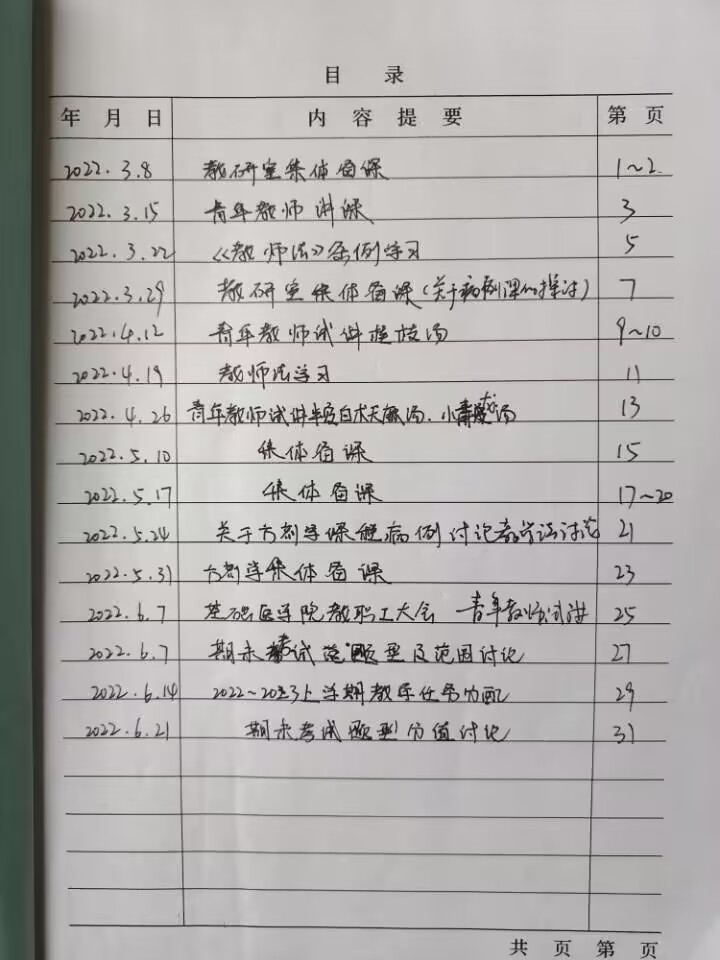 目 录
年 月 日 内 容 提 要 第 页
2022.3.8 教研室集体备课 1~2
2022.3.15 青年教师讲课 3
2022.3.22 《教师法》条例学习 5
2022.3.29 教研室集体备课(关于病例课的探讨) 7
2022.4.12 青年教师试讲桂枝汤 9~10
2022.4.19 教师法学习 11
2022.4.26 青年教师试讲半夏白术天麻汤、小青龙汤 13
2022.5.10 集体备课 15
2022.5.17 集体备课 17~20
2022.5.24 关于方剂学课程病例讨论教学法讨论 21
2022.5.31 方剂学集体备课 23
2022.6.7 基础医学院教职工大会 青年教师试讲 25
2022.6.7 期末考试 题型及范围讨论 27
2022.6.14 2022~2023上学期教学任务分配 29
2022.6.21 期末考试题型分值讨论 31
共 页 第 页